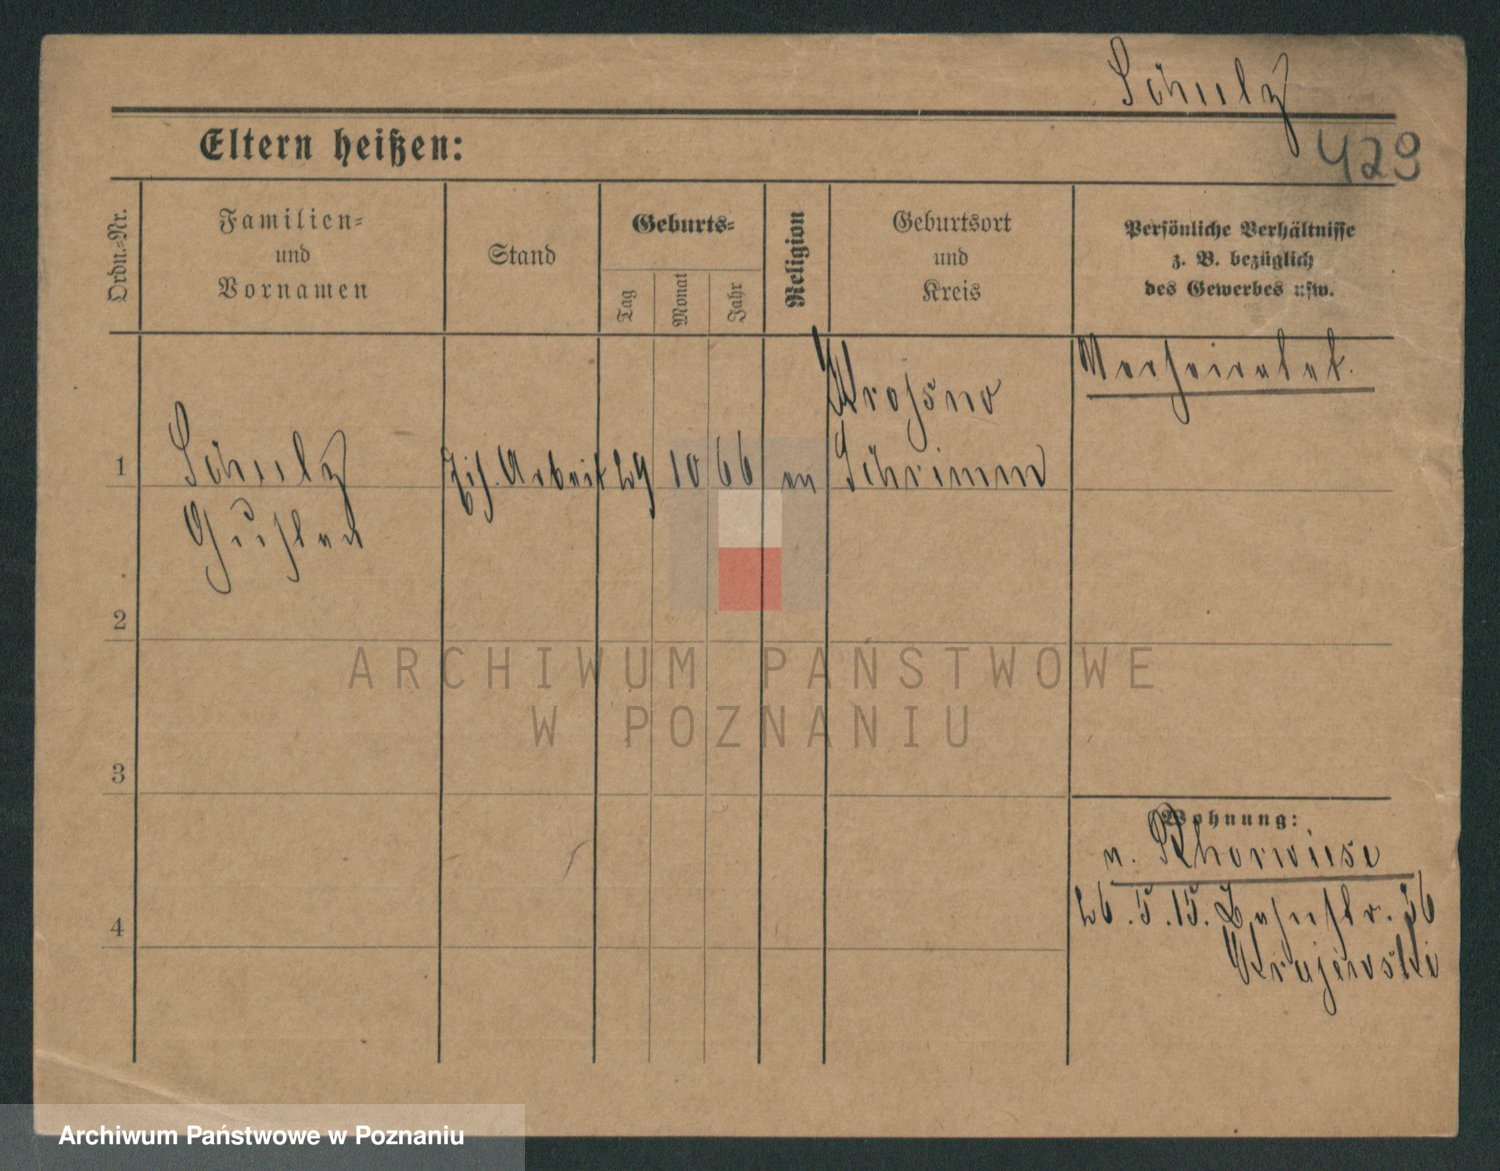 Schulz
429
Eltern heißen:
Ordn.-Nr.
Familien-
und
Vornamen
Stand
Geburts-
Tag
Monat
Jahr
Religion
Geburtsort
und
Kreis
Persönliche Verhältnisse
z. B. bezüglich
des Gewerbes usw.
Verheiratet.
Krosno
1
Schulz
Zig. Arbeit
29
10
66
ev
Schrimm
Gustav
2
ARCHIWUM PAŃSTWOWE
W POZNANIU
3
Wohnung:
n.
4
26.5.15.
36
Krajewski
Archiwum Państwowe w Poznaniu